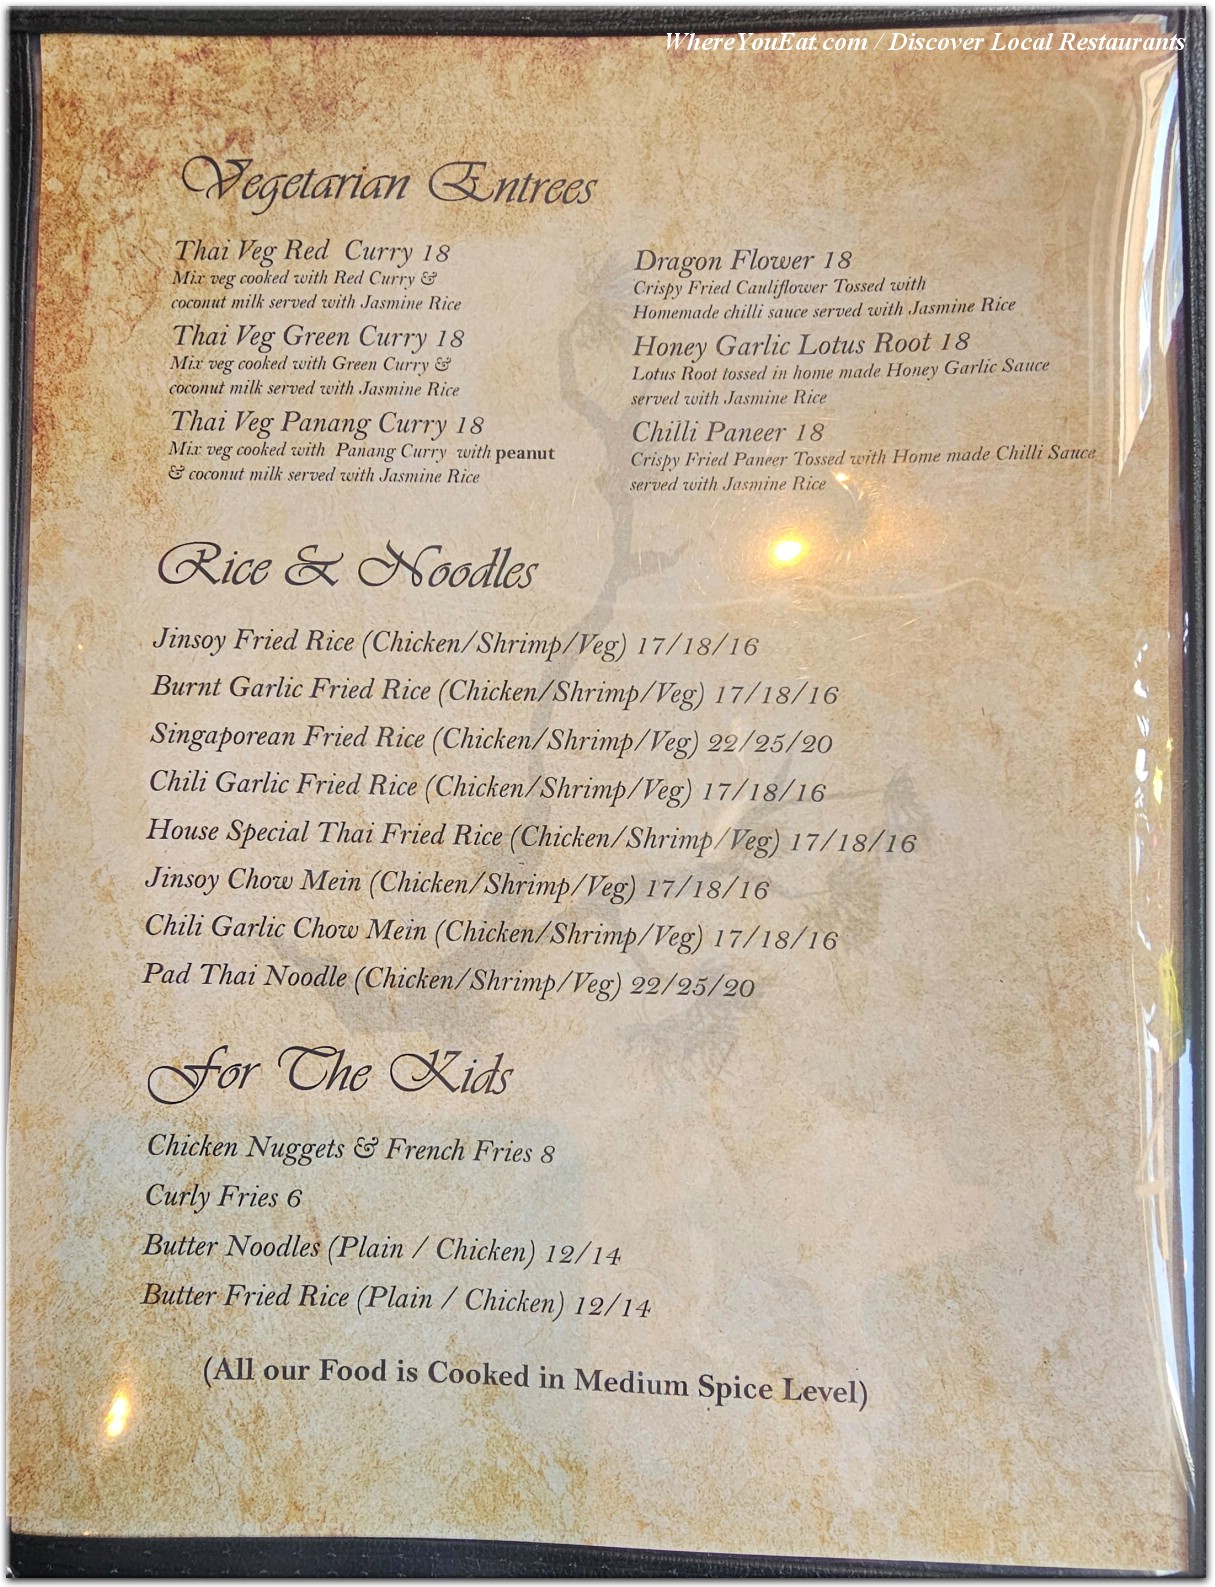 WhereYouEat.com / Discover Local Restaurants
Vegetarian Entrees
Thai Veg Red Curry 18
Mix veg cooked with Red Curry &
coconut milk served with Jasmine Rice
Thai Veg Green Curry 18
Mix veg cooked with Green Curry &
coconut milk served with Jasmine Rice
Thai Veg Panang Curry 18
Mix veg cooked with Panang Curry with peanut
& coconut milk served with Jasmine Rice
Dragon Flower 18
Crispy Fried Cauliflower Tossed with
Homemade chilli sauce served with Jasmine Rice
Honey Garlic Lotus Root 18
Lotus Root tossed in home made Honey Garlic Sauce
served with Jasmine Rice
Chilli Paneer 18
Crispy Fried Paneer Tossed with Home made Chilli Sauce
served with Jasmine Rice
Rice & Noodles
Jinsoy Fried Rice (Chicken/Shrimp/Veg) 17/18/16
Burnt Garlic Fried Rice (Chicken/Shrimp/Veg) 17/18/16
Singaporean Fried Rice (Chicken/Shrimp/Veg) 22/25/20
Chili Garlic Fried Rice (Chicken/Shrimp/Veg) 17/18/16
House Special Thai Fried Rice (Chicken/Shrimp/Veg) 17/18/16
Jinsoy Chow Mein (Chicken/Shrimp/Veg) 17/18/16
Chili Garlic Chow Mein (Chicken/Shrimp/Veg) 17/18/16
Pad Thai Noodle (Chicken/Shrimp/Veg) 22/25/20
For The Kids
Chicken Nuggets & French Fries 8
Curly Fries 6
Butter Noodles (Plain / Chicken) 12/14
Butter Fried Rice (Plain / Chicken) 12/14
(All our Food is Cooked in Medium Spice Level)